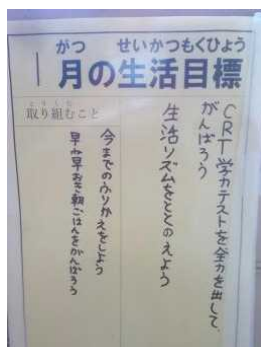 がつ せいかつもくひょう
1月の生活目標
CRT学力テストを全力を出して、
がんばろう
生活リズムをととのえよう
とりくむこと
取り組むこと
今までのふりかえをしよう
早み早おき朝ごはんをがんばろう